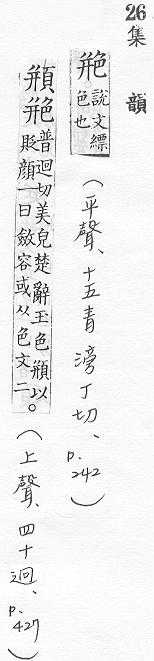 26 集韻
艵 說文縹色也 （平聲、十五青滂丁切、p. 242）
頩艵 普迥切美皃楚辭玉色頩以脕顏一曰斂容或从色文二。（上聲、四十迥、p. 427）